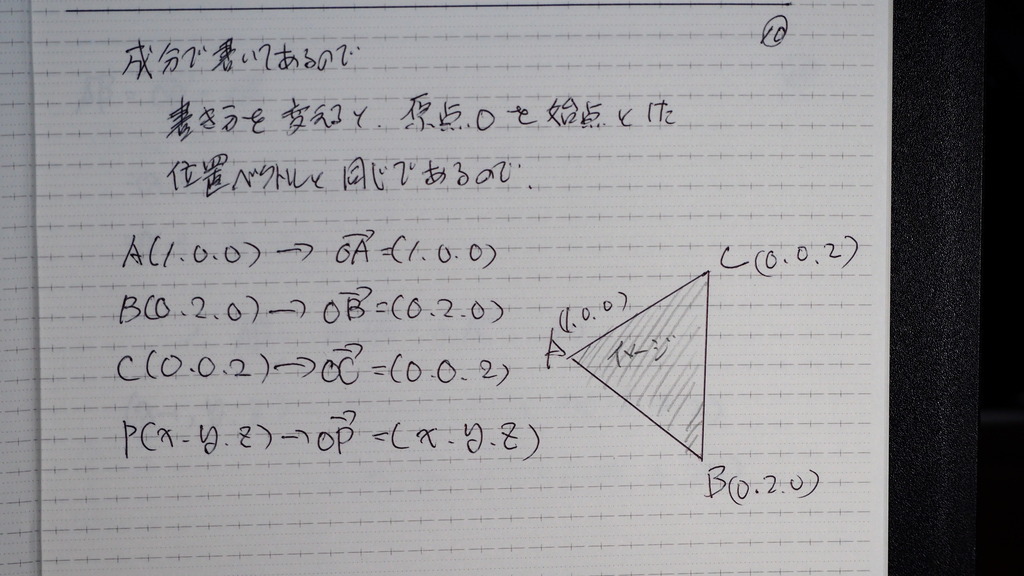 ⑩
成分で書いてあるので
書き方を変えると、原点Oを始点とした
位置ベクトルと同じであるので、
A(1.0.0)→OA=(1.0.0)
B(0.2.0)→OB=(0.2.0)
C(0.0.2)→OC=(0.0.2)
P(x.y.z)→OP=(x.y.z)
C(0.0.2)
(1.0.0)
A
イメージ
B(0.2.0)